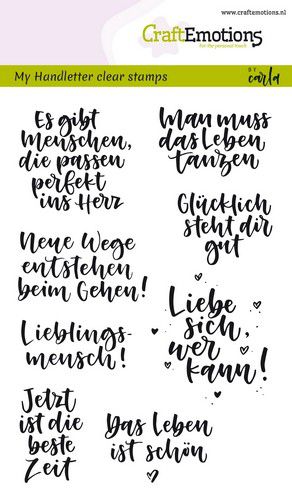 www.craftemotions.nl
CraftEmotions
for the personal touch
My Handletter clear stamps
BY
carla
Es gibt
Menschen,
die passen
perfekt
ins Herz
Man muss
das Leben
tanzen
Glücklich
steht dir
gut
Neue Wege
entstehen
beim Gehen!
Liebe
sich,
wer
kann!
Lieblings-
mensch!
Jetzt
ist die
beste
Zeit
Das Leben
ist schön